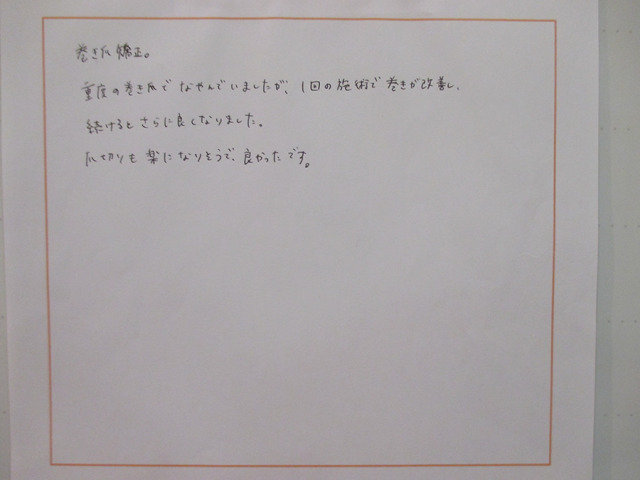 巻き爪矯正。
重度の巻き爪でなやんでいましたが、1回の施術で巻きが改善し、
続けるとさらに良くなりました。
爪切りも楽になりそうで、良かったです。